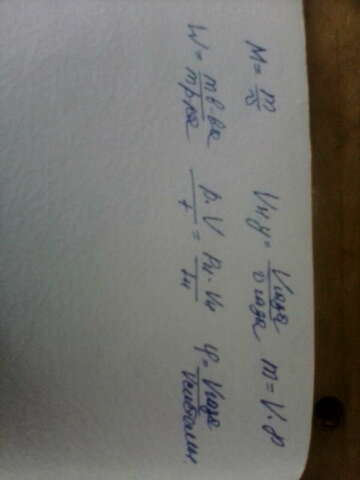 M = m/ν Vн.у = Vгаза/νгаза m = V·ρ
W = m в-ва/m р-ра P·V/t = Pн·Vн/Tн φ = Vгаза/Vсмеси